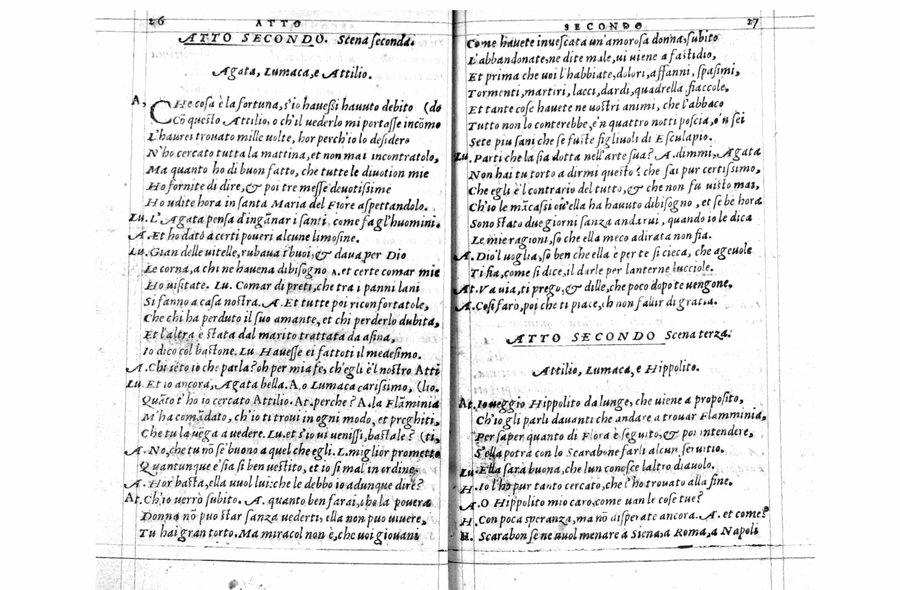 26 ATTO
ATTO SECONDO. Scena seconda.
Agata, Lumaca, e Attilio.
A, CHe cosa è la fortuna, s'io hauessi hauuto debito (do
Cõ questo Attilio, o ch'il uederlo mi portasse incõmo
L'haurei trouato mille uolte, hor perch'io lo desidero
N'ho cercato tutta la mattina, et non mai incontratolo,
Ma quanto ho di buon fatto, che tutte le diuotion mie
Ho fornite di dire, & poi tre messe deuotisime
Ho udite hora in santa Maria del Fiore aspettandolo.
Lu. L'Agata pensa d'ingãnar i santi come fa gl'huomini.
A. Et ho dato a certi poueri alcune limosine.
Lu. Gian delle uitelle, rubaua i buoi, & daua per Dio
Le corna, a chi ne haueua dibisogno A. et certe comar mie
Ho uisitate. Lu. Comar di preti, che tra i panni lani
Si fanno a casa nostra. A. Et tutte poi riconfortatole,
Che chi ha perduto il suo amante, et chi perderlo dubita,
Et l'altra è stata dal marito trattata da asina,
Io dico col bastone. Lu Hauesse ei fattoti il medesimo.
A. Chi sèto io che parla? oh per mia fe, ch'egli è'l nostro Atti
Lu. Et io ancora, Agata bella. A. o Lumaca carissimo, (lio.
Quãto t'ho io cercato Attilio. At. perche? A. la Flãminia
M'ha comãdato, ch'io ti troui in ogni modo, et preghiti,
Che tu la uega a uedere. Lu. et s'io ui uenissi, bastale? (ti,
A. No, che tu nõ se buono a quel che egli. L. miglior prometto
Quantunque e' sia sì ben uestito, et io sì mal in ordine.
A. Hor basta, ella uuol lui: che le debbo io adunque dire?
At. Ch'io uerrò subito. A. quanto ben farai, che la pouera
Donna nõ puo star sanza uederti, ella non puo uiuere,
Tu hai gran torto. Ma miracol non è, che voi giouani
SECONDO 27
Come hauete inuescata un'amorosa donna, subito
L'abbandonate, ne dite male, ui uiene a fastidio,
Et prima che uoi l'habbiate, dolori, affanni, spasimi,
Tormenti, martiri, lacci, dardi, quadrella, fiaccole,
Et tante cose hauete ne uostri animi, che l'abbaco
Tutto non lo conterebbe, e'n quattro notti poscia, o'n sei
Sete piu sani che se fuste figliuoli di Esculapio.
Lu. Parti che la sia dotta nell'arte sua? A. dimmi, Agata
Non hai tu torto a dirmi questo? che sai pur certissimo,
Che egli è'l contrario del tutto, & che non fu uisto mai,
Ch'io le mãcassi ou'ella ha hauuto dibisogno, et se be hora
Sono stato due giorni sanza andarui, quando io le dica
Le mie ragioni, so che ella meco adirata non fia.
A. Dio'l uoglia, so ben che ella e per te sì cieca, che ageuole
Ti fia, come si dice, il darle per lanterne lucciole.
At. Va uia, ti prego, & dille, che poco dopo te uengone.
A. Cosi farò, poi che ti piace, ch non fallir di gratia.
ATTO SECONDO Scena terza.
Attilio, Lumaca, e Hippolito.
At. Io ueggio Hippolito da lunge, che uiene a proposito,
Ch'io gli parli dauanti che andare a trouar Flamminia,
Per saper quanto di Flora è seguito, & poi intendere,
S'ella potrà con lo Scarabone farli alcun seruitio.
Lu. Ella sarà buona, che l'un conosce l'altro diauolo.
H. Io l'ho pur tanto cercato, che l'ho trouato alla fine.
A. O Hippolito mio caro, come uan le cose tue?
H. Con poca speranza, ma nõ disperate ancora. A. et come?
H. Scarabon se ne uuol menare a Siena, a Roma, a Napoli